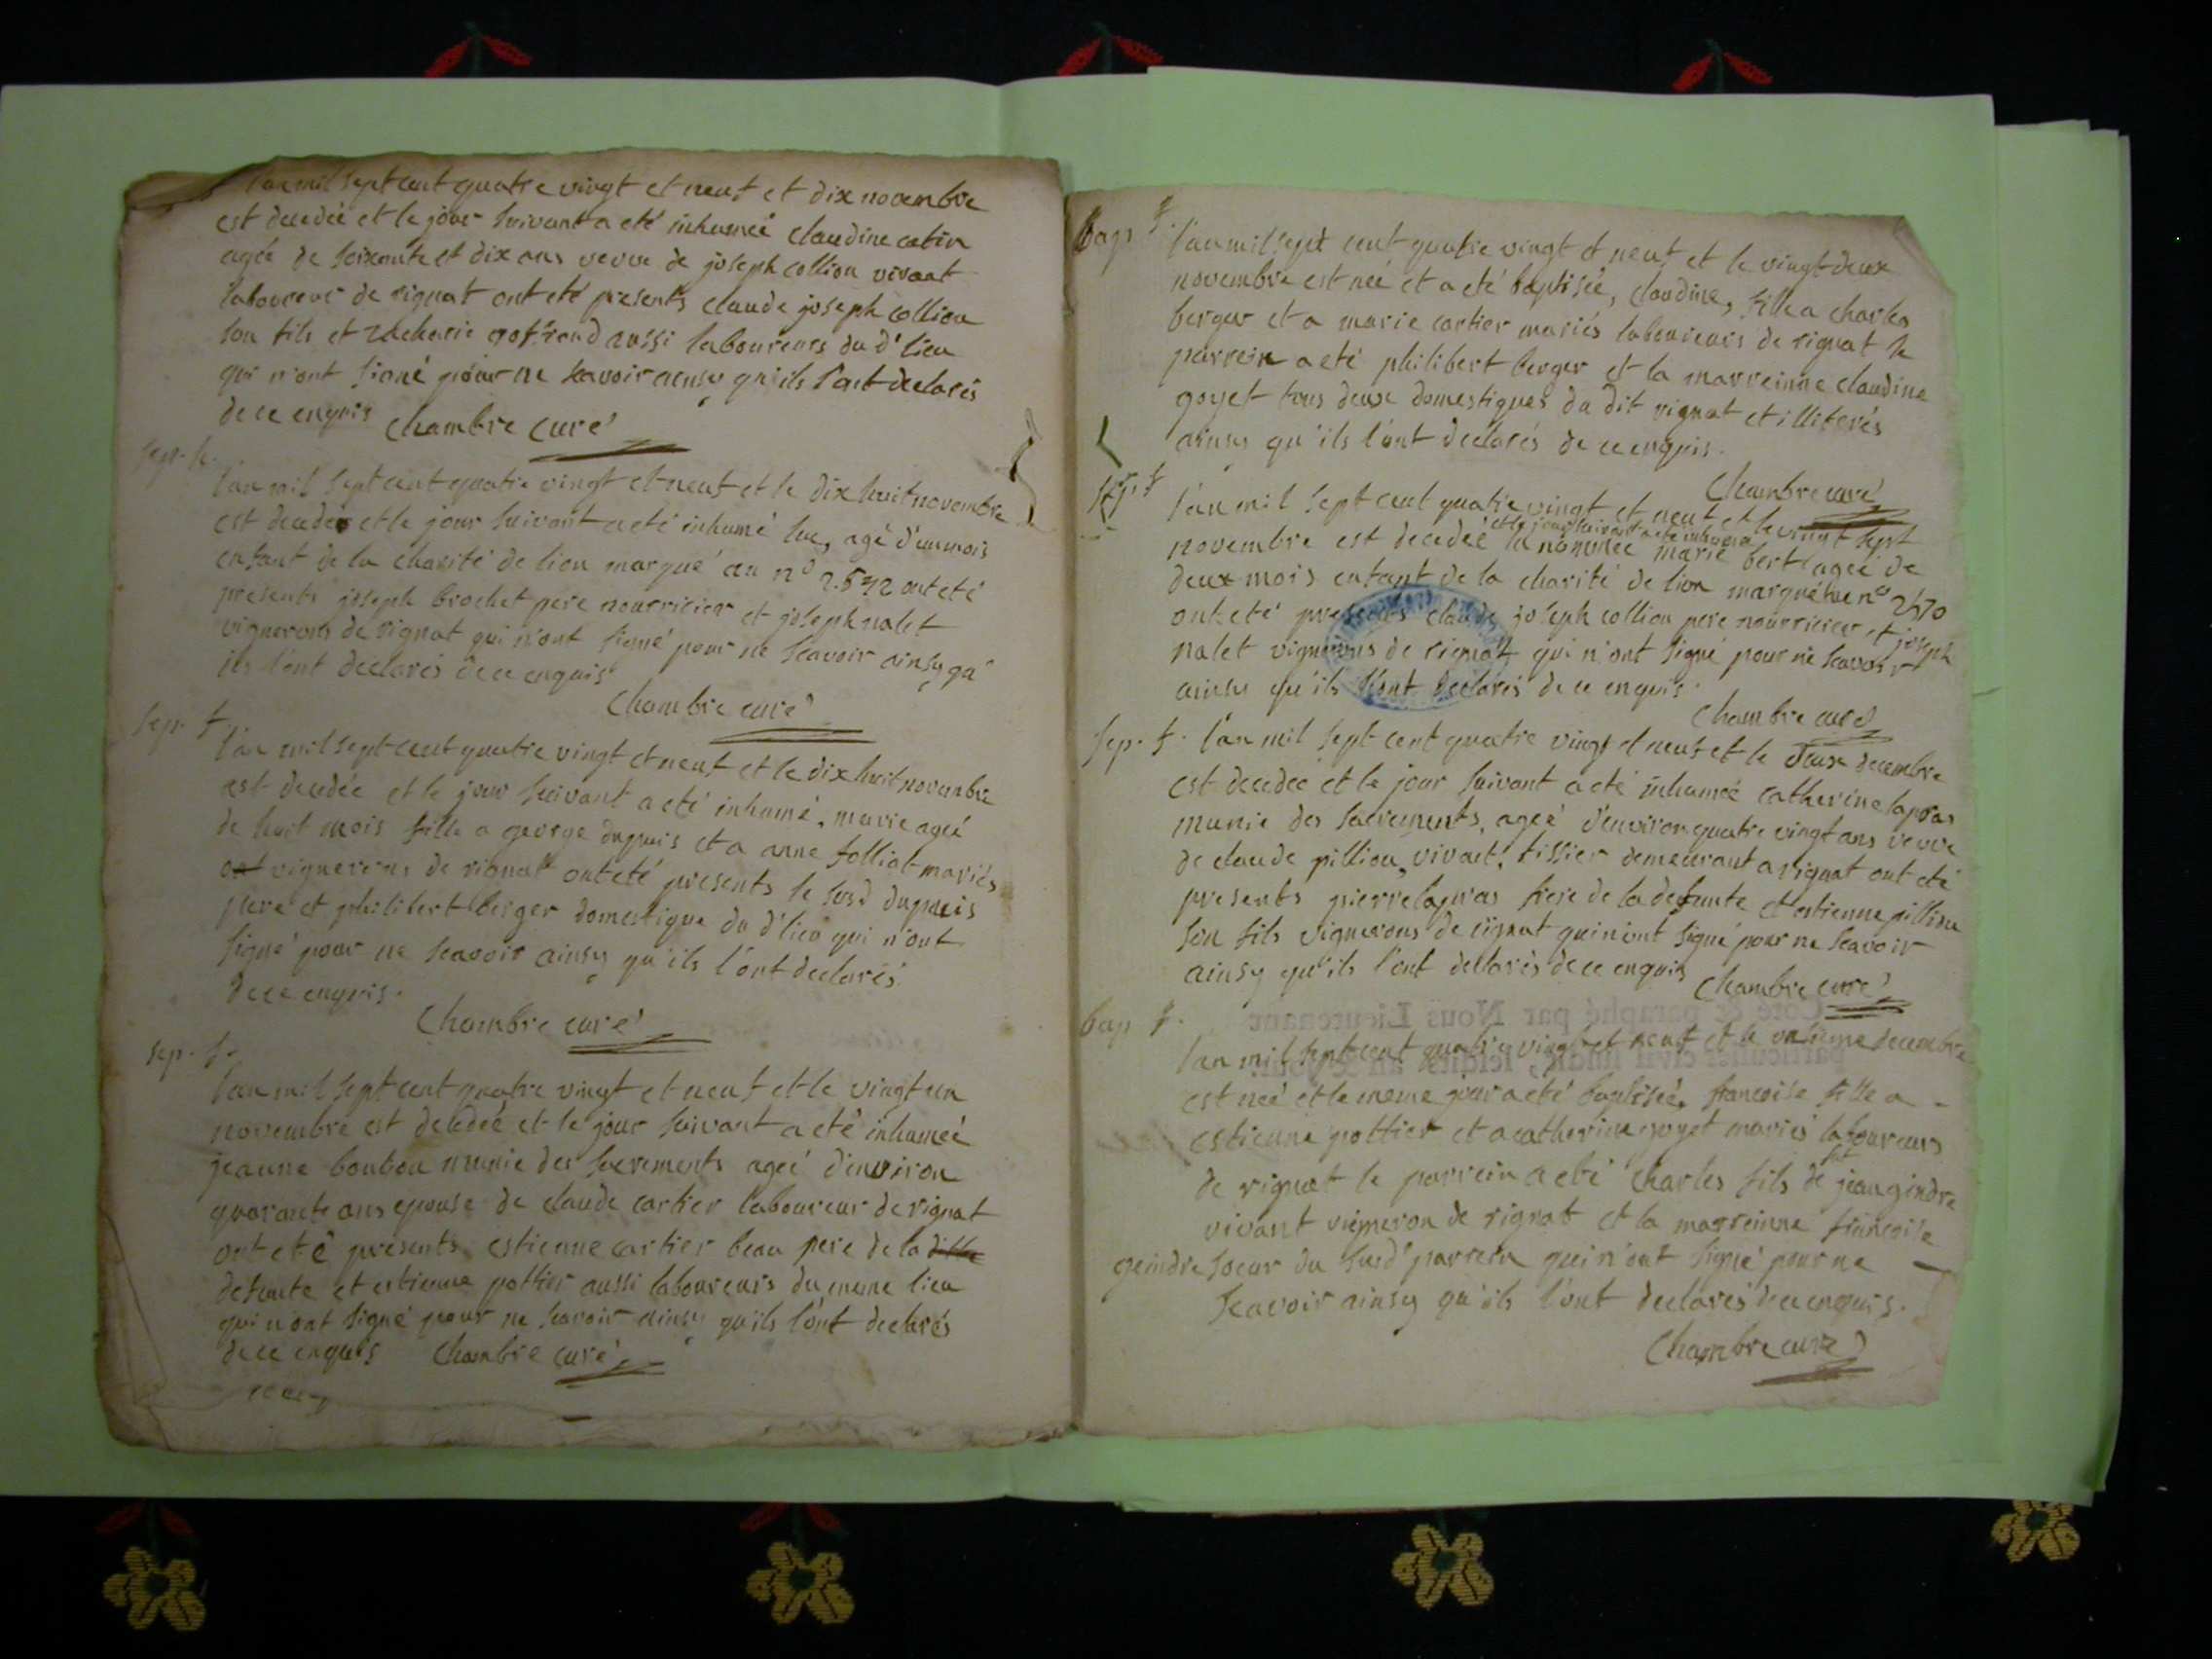 l'an mil sept cent quatre vingt et neuf et dix novembre
est decedée et le jour suivant a eté inhumée claudine catin
agée de soixante et dix ans veuve de joseph collion vivant
laboureur de rignat ont eté presents claude joseph collion
son fils et zacharie goffrand aussi laboureurs du d' lieu
qui n'ont signé pour ne scavoir ainsy qu'ils l'ont declarés
de ce enquis Chambre curé
sep. h.
l'an mil sept cent quatre vingt et neuf et le dix huit novembre
est decedé et le jour suivant a eté inhumé luc, agé d'un mois
enfant de la charité de lion marqué au n° 2.632 ont eté
presents joseph brochet pere nourricier et joseph nalet
vignerons de rignat qui n'ont signé pour ne scavoir ainsy qu'
ils l'ont declarés de ce enquis
Chambre curé
sep. f.
l'an mil sept cent quatre vingt et neuf et le dix huit novembre
est decedée et le jour suivant a eté inhumé, marie ageé
de huit mois fille a george dupuis et a anne folliat mariés
vignerons de rignat ont eté presents le susd dupuis
pere et philibert berger domestique du d' lieu qui n'ont
signé pour ne scavoir ainsy qu'ils l'ont declarés
de ce enquis.
Chambre curé
sep. f.
l'an mil sept cent quatre vingt et neuf et le vingt un
novembre est decedéé et le jour suivant a eté inhumeé
jeanne bonbon munie des sacrements ageé d'environ
quarante ans epouse de claude cartier laboureur de rignat
ont eté presents estienne cartier beau pere de la ditte
defunte et estienne pottier aussi laboureurs du meme lieu
qui n'ont signé pour ne scavoir ainsy qu'ils l'ont declarés
de ce enquis Chambre curé
bap f.
l'an mil sept cent quatre vingt et neuf et le vingt deux
novembre est neé et a eté baptiseé, claudine, fille a charles
berger et a marie cartier mariés laboureurs de rignat le
parrein a eté philibert berger et la marreinne claudine
goyet tous deux domestiques du dit rignat et illiterés
ainsy qu'ils l'ont declarés de ce enquis.
Chambre curé
sep. f
l'an mil sept cent quatre vingt et neuf et le vingt sept
et le jour suivant a eté inhumée
novembre est decedeé la nommée marie bert ageé de
deux mois enfant de la charité de lion marquée au n° 2570
ont eté presents claude joseph collion pere nourricier et joseph
nalet vignerons de rignat qui n'ont signé pour ne scavoir
ainsy qu'ils l'ont declarés de ce enquis.
Chambre curé
sep. f. l'an mil sept cent quatre vingt et neuf et le deux decembre
est decedeé et le jour suivant a eté inhumeé catherine lapras
munie des sacrements, ageé d'environ quatre vingt ans veuve
de claude pillion, vivant, tissier demeurant a rignat ont eté
presents pierre lapras frere de la defunte et estienne pillion
son fils vignerons de rignat qui n'ont signé pour ne scavoir
ainsy qu'ils l'ont declarés de ce enquis
Chambre curé
bap f.
Coté & paraphé par Nous Lieutenant
l'an mil sept cent quatre vingt et neuf et le onzieme decembre
particulier civil
est neé et le meme jour a eté baptiseé, francoise fille a
estienne pottier et a catherine goyet mariés laboureurs
de rignat le parrein a eté charles fils de jean gindre
vivant vigneron de rignat et la marreinne francoise
geindre soeur du susd' parrein qui n'ont signé pour ne
scavoir ainsy qu'ils l'ont declarés de ce enquis.
Chambre curé